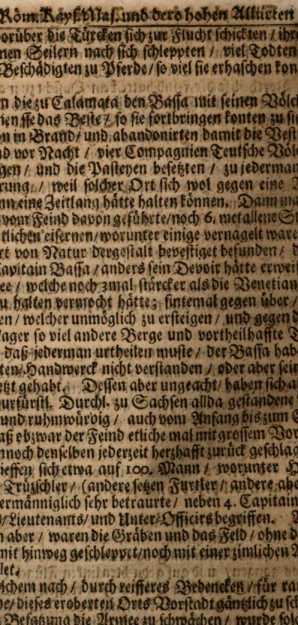 Röm. Käys. Maj. und dero hohen Alliirten
orüber die Türcken sich zur Flucht schickten / ihre
nen Seilern nach sich schleppten / viel Todten
Beschädigten zu Pferde / so viel sie erhaschen kon
n die zu Calamata den Bassa mit seinen Völck
sie das Beste / so sie fortbringen konten zu sic
n in Brand / und abandonirten damit die Vest
d vor Nacht / vier Compagnien Teutsche Völck
gen / und die Pasteyen besetzten / zu jederman
rung / weil solcher Ort sich wol gegen eine
eine Zeitlang hätte halten können. Dann ma
vom Feind davon geführte / noch 6. metallene St
tlichen eisernen / worunter einige vernagelt ware
rt von Natur dergestalt bevestiget befunden / d
apitain Bassa / anders sein Devoir hätte erwei
ee / welche noch 3mal stärcker als die Venetian
u halten vermocht hätte; sintemal gegen über /
en / welcher unmöglich zu ersteigen / und gegen d
ager so viel andere Berge und vortheilhaffte T
daß jederman urtheilen muste / der Bassa hab
ten-Handwerck nicht verstanden / oder aber sein
tzt gehabt. Dessen aber ungeacht / haben sich a
urfürstl. Durchl. zu Sachsen allda gestandene
und ruhmwürdig / auch vom Anfang bis zum E
aß obzwar der Feind etliche mal mit grossem Vor
nnoch denselben jederzeit hertzhafft zurück geschlag
ieffen sich etwa auf 100. Mann / worunter H
Trützschler / (andere setzen Furtler / andere abe
ermänniglich sehr betraurte / neben 4. Capitain
/ Lieutenants / und Unter-Officirs begriffen.
n aber / waren die Gräben und das Feld / ohne d
mit hinweg geschleppet / noch mit einer zimlichen A
let.
schem nach / durch reifferes Bedencken / für ra
e / dieses eroberten Orts Vorstadt gäntzlich zu sch
Besatzung die Armee zu schwächen / wurde sol